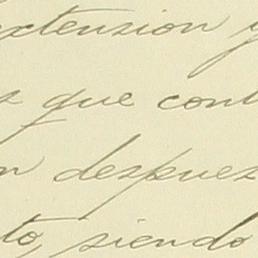 extension y
s que cont
n despues
to, siendo